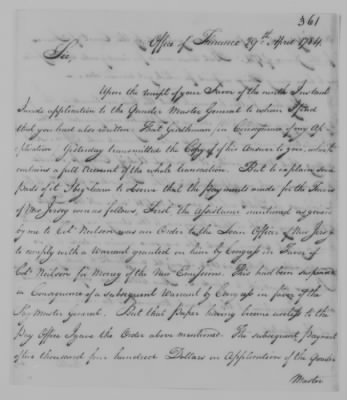 361
Office of Finance 29th April 1784.
Sir,
Upon the receipt of your Favor of the ninth Instant
I made application to the Quarter Master General to whom I find
that you had also written. That Gentleman in Consequence of my Ap-
plication Yesterday transmitted the Copy of his Answer to you, which
contains a full Account of the whole transaction. But to explain some
Parts of it I beg leave to observe that the Payments made for the Troops
of New Jersey were as follows. First the assistance mentioned as given
by me to Col. Neilson was an Order to the Loan Officer of New Jersey
to comply with a Warrant granted on him by Congress in Favor of
Col. Neilson for Money of the New Emissions. This had been suspended
in Consequence of a subsequent Warrant by Congress in favor of the
Pay Master General. But that Paper having become useless to the
Pay Office I gave the Order above mentioned. The subsequent Payment
of five thousand four hundred Dollars on Application of the Quarter
Master